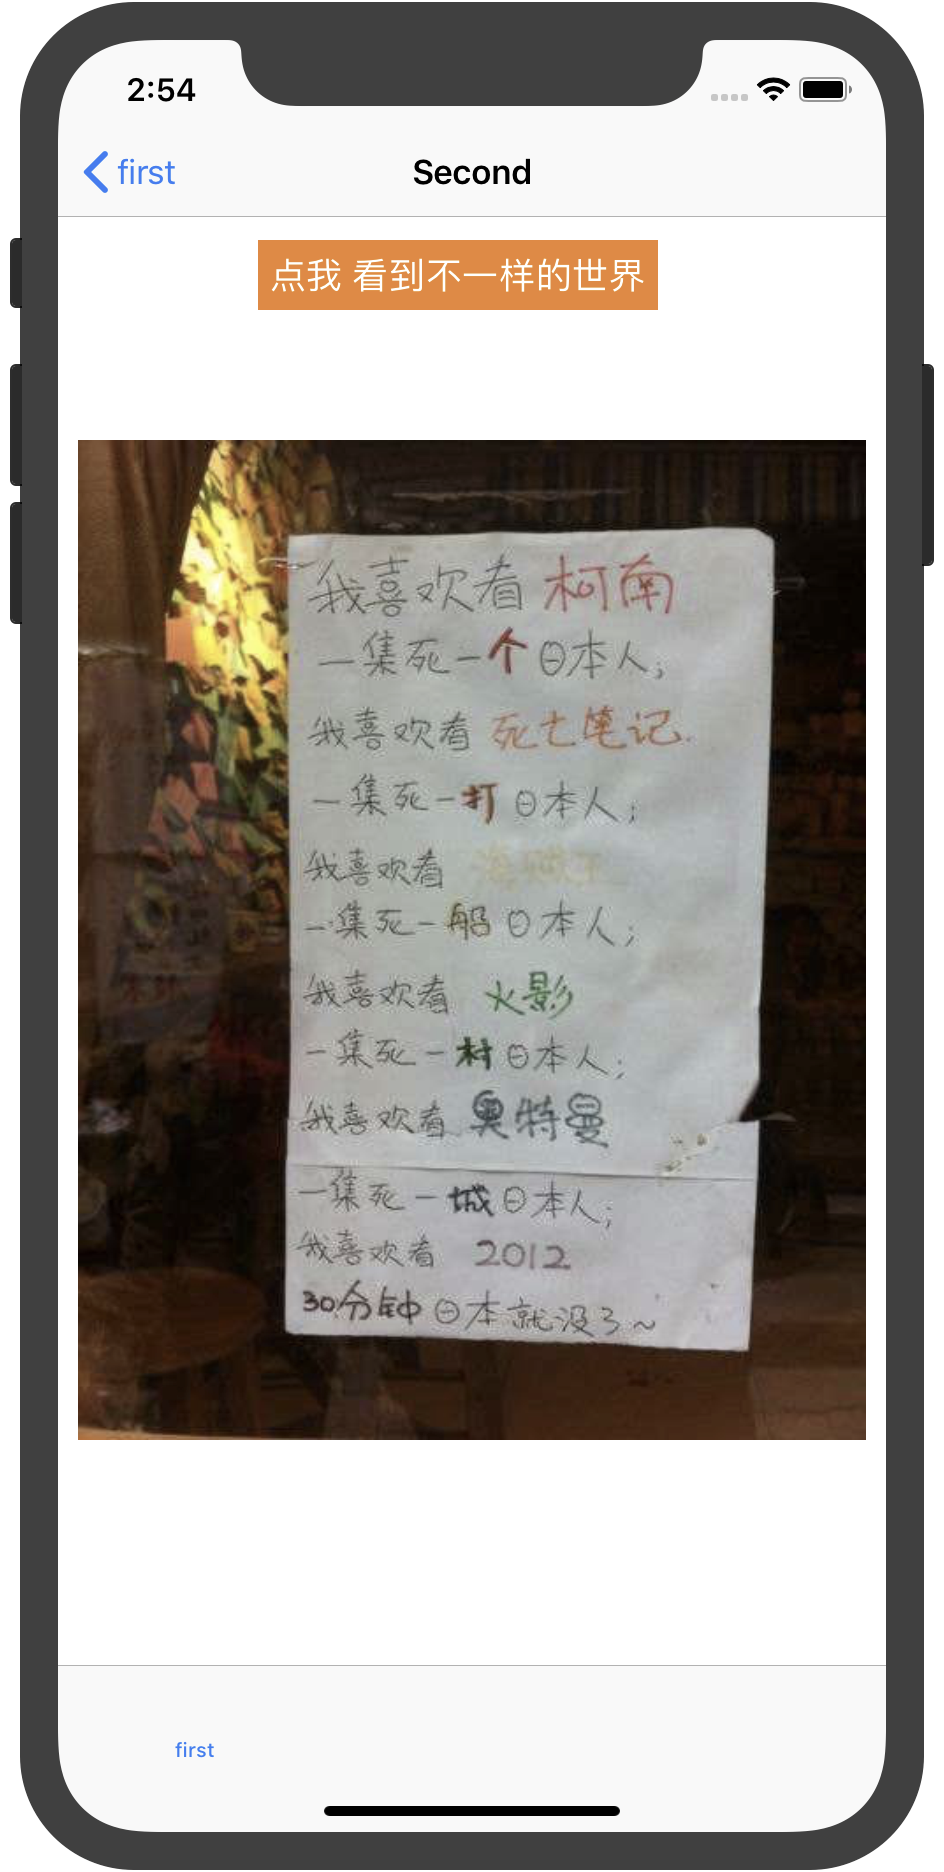 2:54
first
Second
点我 看到不一样的世界
我喜欢看 柯南
一集死一个日本人;
我喜欢看 死亡笔记.
一集死一打日本人;
我喜欢看 海贼王
一集死一船日本人;
我喜欢看 火影
一集死一村日本人;
我喜欢看 奥特曼
一集死一城日本人;
我喜欢看 2012
30分钟日本就没了~
first